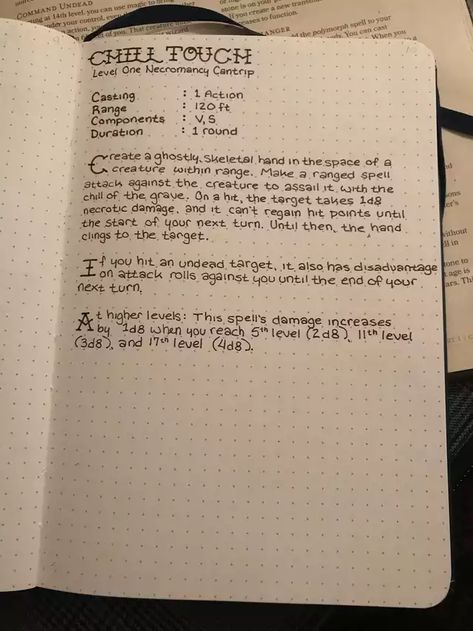 COMMAND UNDEAD
CHILL TOUCH
Level One Necromancy Cantrip
Casting : 1 Action
Range : 120 ft
Components : V, S
Duration : 1 round
Create a ghostly, skeletal hand in the space of a
creature within range. Make a ranged spell
attack against the creature to assail it with the
chill of the grave. On a hit, the target takes 1d8
necrotic damage, and it can't regain hit points until
the start of your next turn. Until then, the hand
clings to the target.
If you hit an undead target, it also has disadvantage
on attack rolls against you until the end of your
next turn.
At higher levels: This spell's damage increases
by 1d8 when you reach 5th level (2d8), 11th level
(3d8), and 17th level (4d8).